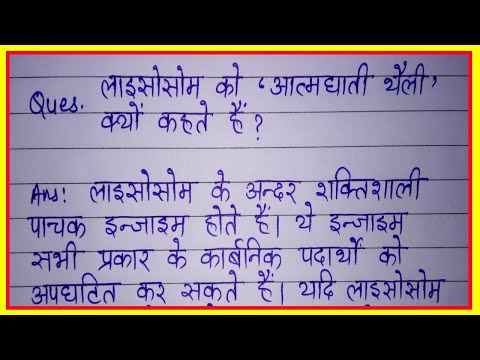 Ques. लाइसोसोम को ‘आत्मघाती थैली’
क्यों कहते हैं?
Ans: लाइसोसोम के अन्दर शक्तिशाली
पाचक इन्जाइम होते हैं। ये इन्जाइम
सभी प्रकार के कार्बनिक पदार्थों को
अपघटित कर सकते हैं। यदि लाइसोसोम